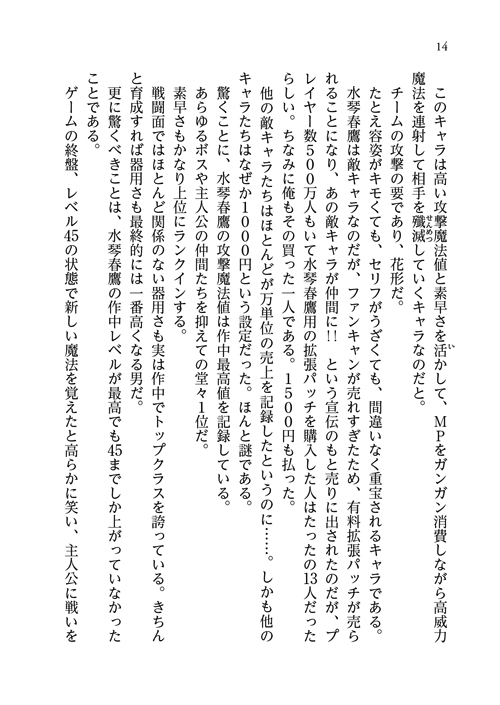 14
このキャラは高い攻撃魔法値と素早さを活かして、MPをガンガン消費しながら高威力
魔法を連射して相手を殲滅していくキャラなのだと。
チームの攻撃の要であり、花形だ。
たとえ容姿がキモくても、セリフがうざくても、間違いなく重宝されるキャラである。
水琴春鷹は敵キャラなのだが、ファンキャンが売れすぎたため、有料拡張パッチが売ら
れることになり、あの敵キャラが仲間に!! という宣伝のもと売りに出されたのだが、プ
レイヤー数500万人もいて水琴春鷹用の拡張パッチを購入した人はたったの13人だった
らしい。ちなみに俺もその買った一人である。1500円も払った。
他の敵キャラたちはほとんどが万単位の売上を記録したというのに……。しかも他の
キャラたちはなぜか1000円という設定だった。ほんと謎である。
驚くことに、水琴春鷹の攻撃魔法値は作中最高値を記録している。
あらゆるボスや主人公の仲間たちを抑えての堂々1位だ。
素早さもかなり上位にランクインする。
戦闘面ではほとんど関係のない器用さも実は作中でトップクラスを誇っている。きちん
と育成すれば器用さも最終的には一番高くなる男だ。
更に驚くべきことは、水琴春鷹の作中レベルが最高でも45までしか上がっていなかった
ことである。
ゲームの終盤、レベル45の状態で新しい魔法を覚えたと高らかに笑い、主人公に戦いを